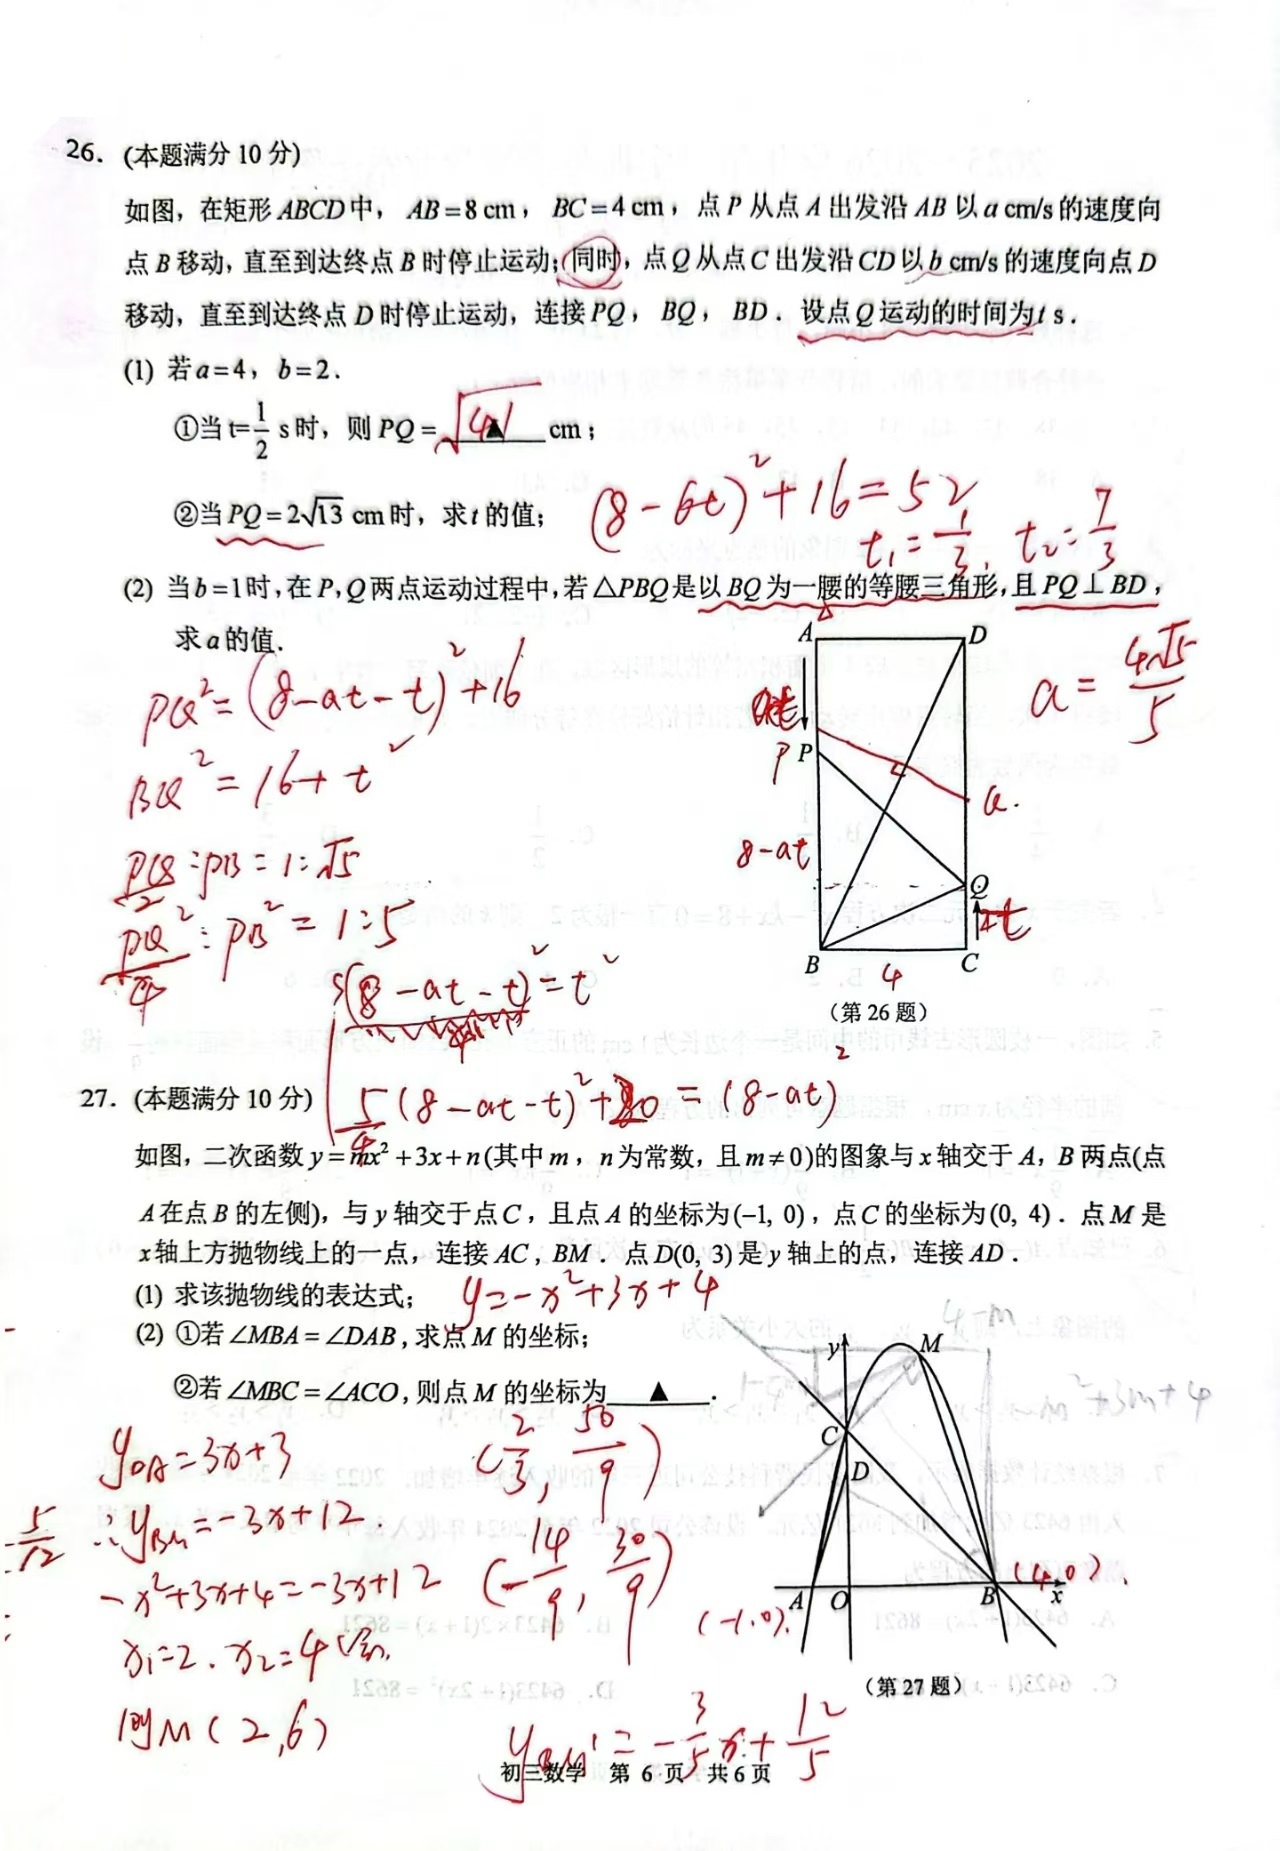 26. (本题满分 10 分)
如图，在矩形 ABCD 中， AB=8 cm， BC=4 cm，点 P 从点 A 出发沿 AB 以 a cm/s 的速度向
点 B 移动，直至到达终点 B 时停止运动；同时，点 Q 从点 C 出发沿 CD 以 b cm/s 的速度向点 D
移动，直至到达终点 D 时停止运动，连接 PQ， BQ， BD．设点 Q 运动的时间为 t s．
(1) 若 a=4，b=2．
①当 t=1/2 s 时，则 PQ= √41 ▲ cm；
②当 PQ=2√13 cm 时，求 t 的值；
(8-6t)²+16=52
t₁=1/3, t₂=7/3
(2) 当 b=1 时，在 P，Q 两点运动过程中，若 △PBQ 是以 BQ 为一腰的等腰三角形，且 PQ⊥BD，
求 a 的值．
PQ²=(8-at-t)²+16
BQ²=16+t²
PQ/2:PB=1:√5
PQ²/4:PB²=1:5
a=4√5/5
A D
at
P P
Q.
8-at
Q
2t
B 4 C
（第 26 题）
5(8-at-t)²=t²
5/4(8-at-t)²+20=(8-at)²
27. (本题满分 10 分)
如图，二次函数 y=mx²+3x+n(其中 m， n 为常数，且 m≠0)的图象与 x 轴交于 A，B 两点(点
A 在点 B 的左侧)，与 y 轴交于点 C，且点 A 的坐标为(−1, 0)，点 C 的坐标为(0, 4)．点 M 是
x 轴上方抛物线上的一点，连接 AC，BM．点 D(0, 3)是 y 轴上的点，连接 AD．
(1) 求该抛物线的表达式； y=-x²+3x+4
(2) ①若 ∠MBA=∠DAB，求点 M 的坐标；
②若 ∠MBC=∠ACO，则点 M 的坐标为 ▲ ．
(2/3, 50/9)
(-14/9, 30/9)
y_DA=3x+3
∴y_BM=-3x+12
-x²+3x+4=-3x+12
x₁=2. x₂=4
则M(2,6)
5/12
4-m
-m²+3m+4
y M
C
D
A O B x
(-1,0).
(4,0).
（第 27 题）
y_BM'=-3/5x+12/5
初三数学 第 6 页 共 6 页